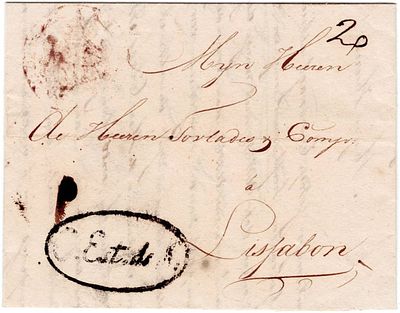 20
Myn Heeren
de Heeren Torlades & Comp.
à
Lissabon
C. Est. de N.